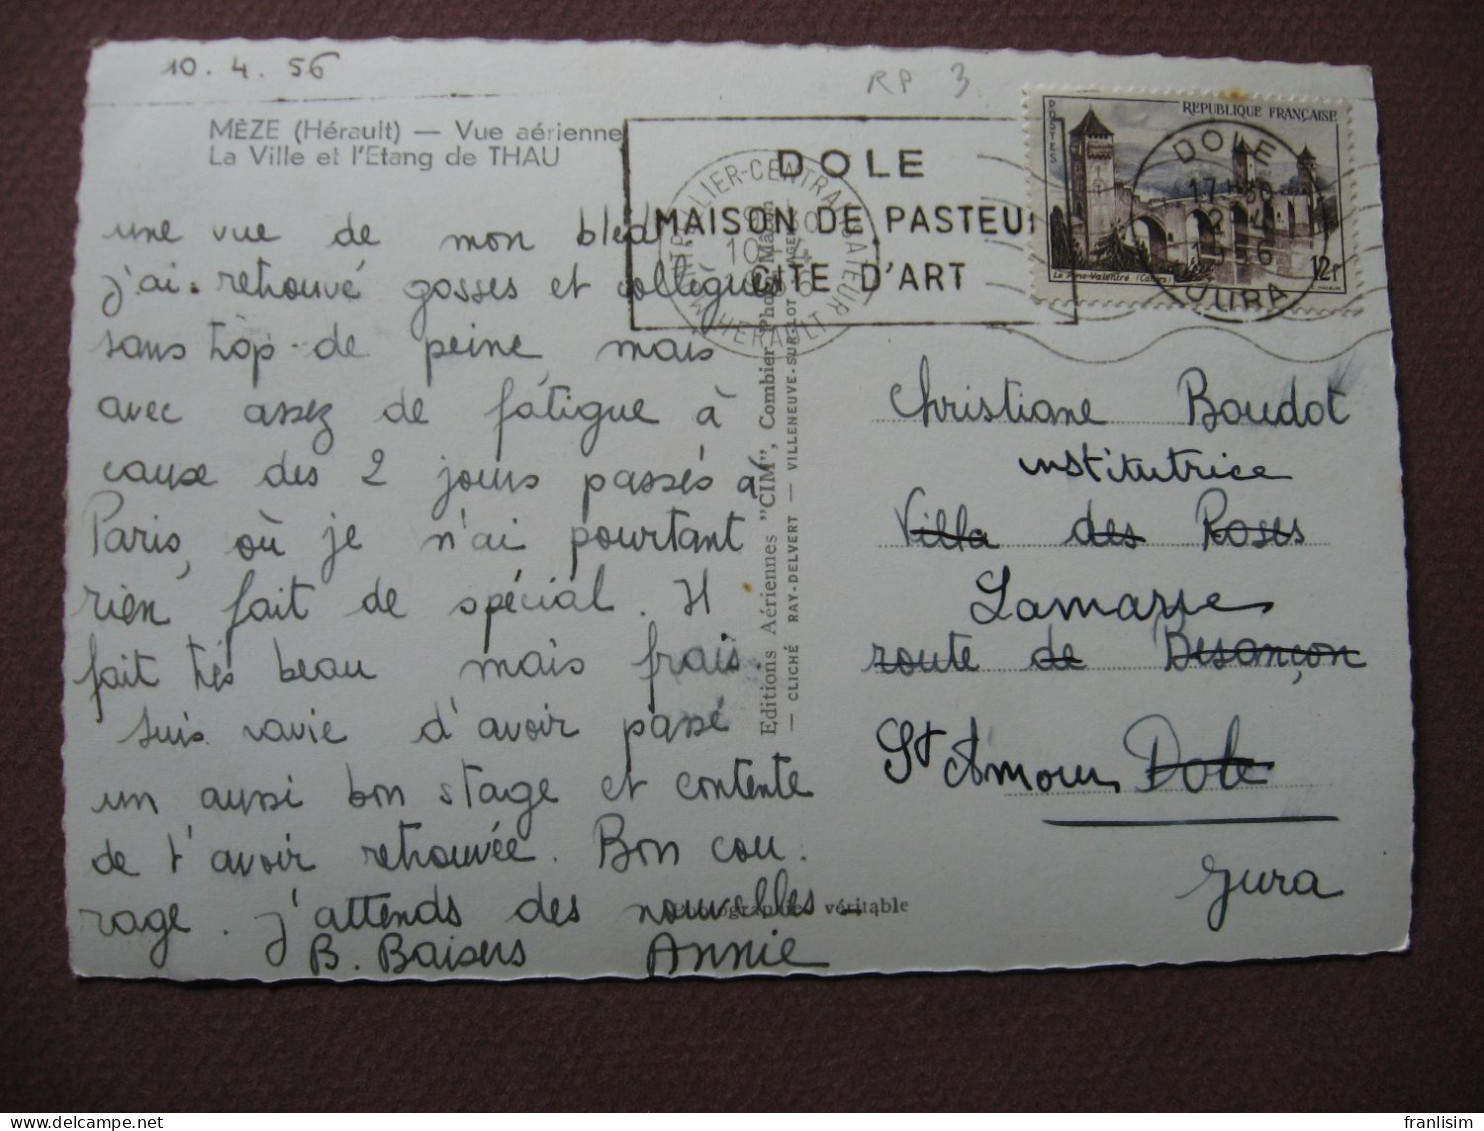 10.4.56
RP 3
MÈZE (Hérault) — Vue aérienne
La Ville et l'Etang de THAU
une vue de mon bled
j'ai retrouvé gosses et collègues
sans trop de peine, mais
avec assez de fatigue à
cause des 2 jours passés à
Paris, où je n'ai pourtant
rien fait de spécial. Il
fait très beau mais frais.
suis ravie d'avoir passé
un aussi bon stage et contente
de t'avoir retrouvée. Bon cou-
rage. j'attends des nouvelles –
B. Baisers Annie
Photographie véritable
Editions Aériennes "CIM", Combier
— CLICHÉ RAY-DELVERT — VILLENEUVE-SUR-LOT
DOLE
MAISON DE PASTEUR
CITE D'ART
HERAULT
POSTES
REPUBLIQUE FRANÇAISE
Le Pont Valentré (Cahors)
12f
DOLE
JURA
Christiane Boudot
institutrice
Villa des Roses
Lamarre
route de Besançon
St Amour Dole
Jura
franlisim
delcampe.net